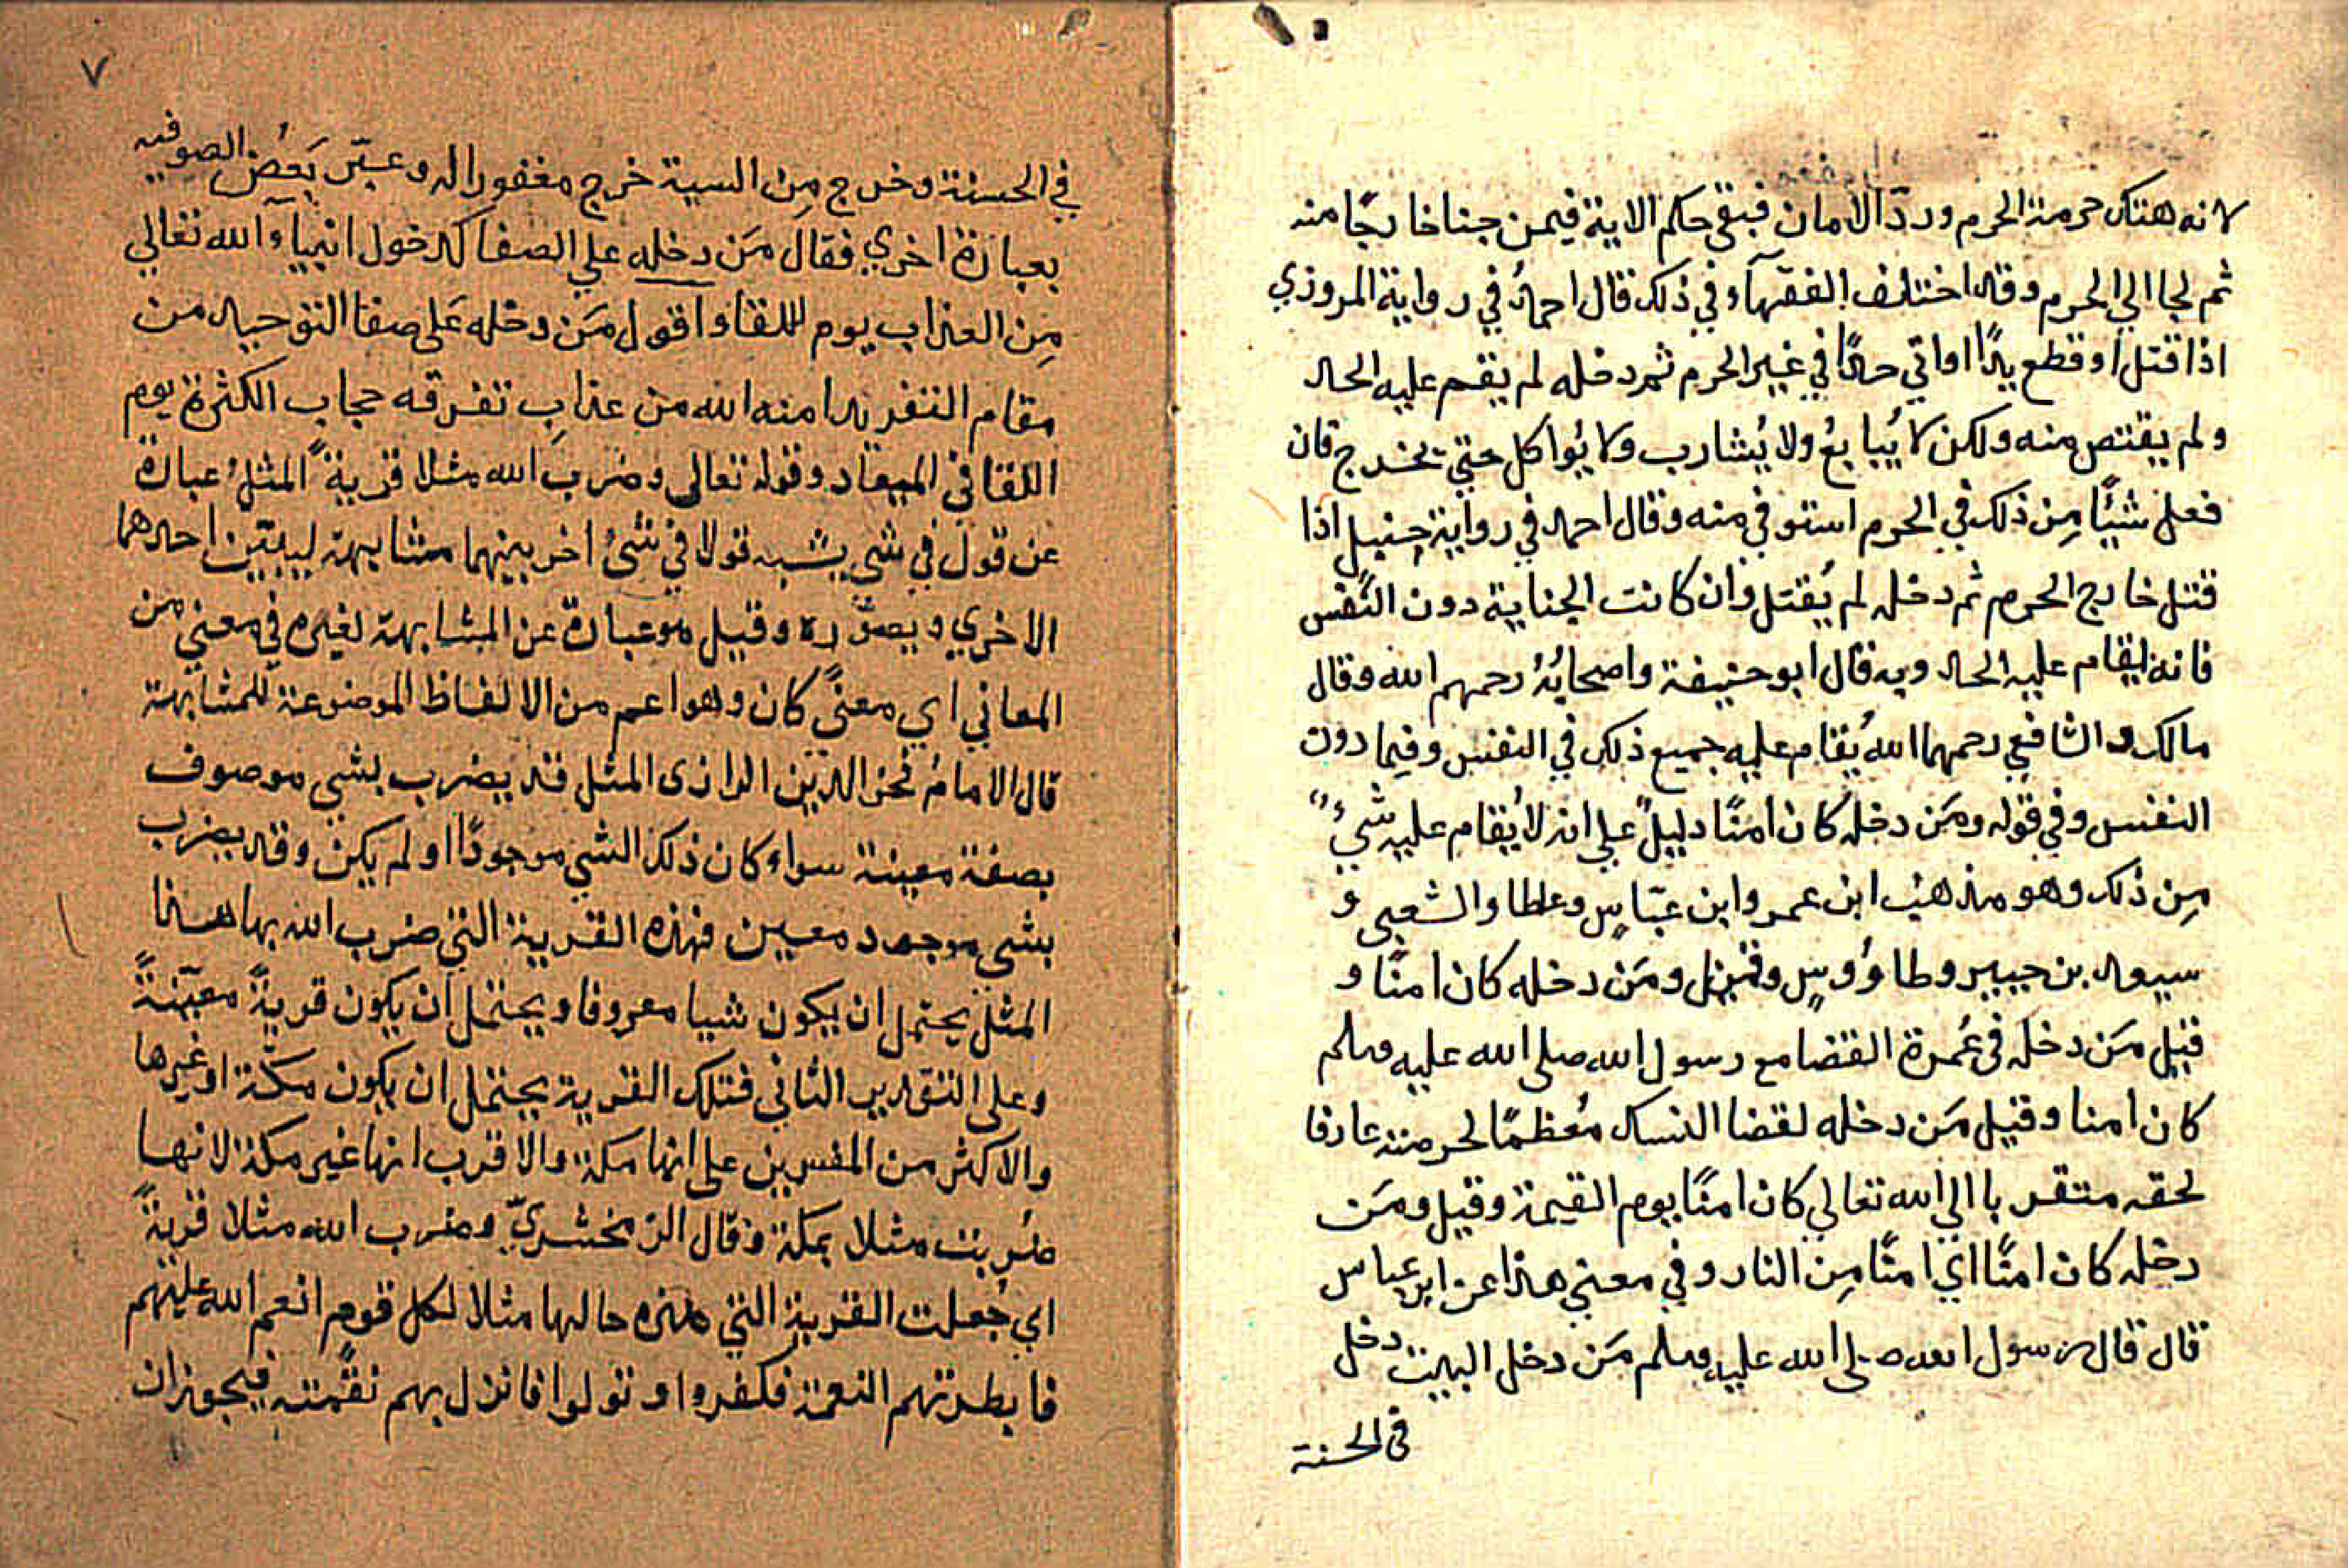 لانه هتك حرمة الحرم وردّ الامان فبقي حكم الاية فيمن جنا خارجًا منه
ثم لجا الي الحرم وقد اختلف الفقهآء في ذلك قال احمدُ في رواية المروزي
اذا قتل او قطع يدًا او اتي حدًا في غير الحرم ثم دخله لم يقم عليه الحد
ولم يقتص منه ولكن لا يُبايعُ ولا يُشارب ولا يُواكل حتي يخرج فان
فعل شئًا مِن ذلك في الحرم استوفي منه وقال احمد في رواية حنبل اذا
قتل خارج الحرم ثم دخله لم يُقتل وان كانت الجناية دون النّفس
فانه يقام عليه الحد وبه قال ابو حنيفة واصحابُهُ رحمهم الله وقال
مالك والشافعي رحمهما الله يُقام عليه جميع ذلك في النفس وفيما دون
النفس وفي قوله ومَن دخله كان امنًا دليلٌ علي انه لا يُقام عليه شيءٌ
مِن ذلك وهو مذهبُ ابن عمر وابن عبّاسٍ وعطا والشعبي و
سعيد بن جبير وطاوُوسٍ وقيل ومَن دخله كان امنًا و
قيل مَن دخله في عُمرة القضا مع رسول الله صلى الله عليه وسلم
كان امنا وقيل مَن دخله لقضا النسك مُعظمًا لحرمته عارفا
لحقه متقربا الي الله تعالي كان امنًا يوم القيمة وقيل ومَن
دخله كان امنًا اي امنًا مِن النار وفي معني هذا عن ابن عباس
قال قال رسول الله صلى الله عليه وسلم مَن دخل البيت دخل
في الحسنة
٧
في الحسنة وخرج مِن السية خرج مغفورا له وعبّر بَعضُ الصوفيه
بعبارة اخري فقال مَن دخله علي الصفا كدخول انبيآء الله تعالي
مِن العذاب يوم للقا واقول مَن دخله عَلى صفا التوحيد من
مقام التفريد امنه الله من عذابِ تفرقه حجاب الكثرة يوم
اللقا في الميعاد وقوله تعالى وضرب الله مثلا قريةً المثلُ عبارة
عن قول في شي يشبه قولا في شئ اخر بينهما مشابهة ليبيّن احدهما
الاخري ويصوّره وقيل هو عبارة عن المشابهة لغيره في معني من
المعاني اي معنًي كان وهو اعم من الالفاظ الموضوعة للمشابهة
قال الامامُ فخر الدّين الرازى المثل قد يضرب بشي موصوف
بصفة معينة سواء كان ذلك الشي موجودًا او لم يكن وقد يضرب
بشي موجود معين فهذه القرية التي ضرب الله بها هذا
المثل يحتمل ان يكون شيا معروفا ويحتمل ان يكون قريةً معيّنةً
وعلى التقدير الثاني فتلك القرية يحتمل ان يكون مكّة او غيرها
والاكثر من المفسرين على انها مكة والاقرب انها غير مكة لانها
ضُربت مثلا بمكة وقال الزمخشريّ وضرب الله مثلا قريةً
اي جُعلت القرية التي هذه حالها مثلا لكل قوم انعم الله عليهم
فابطرتهم النعمة فكفروا وتولوا فانزل بهم نقمته فيجوز ان